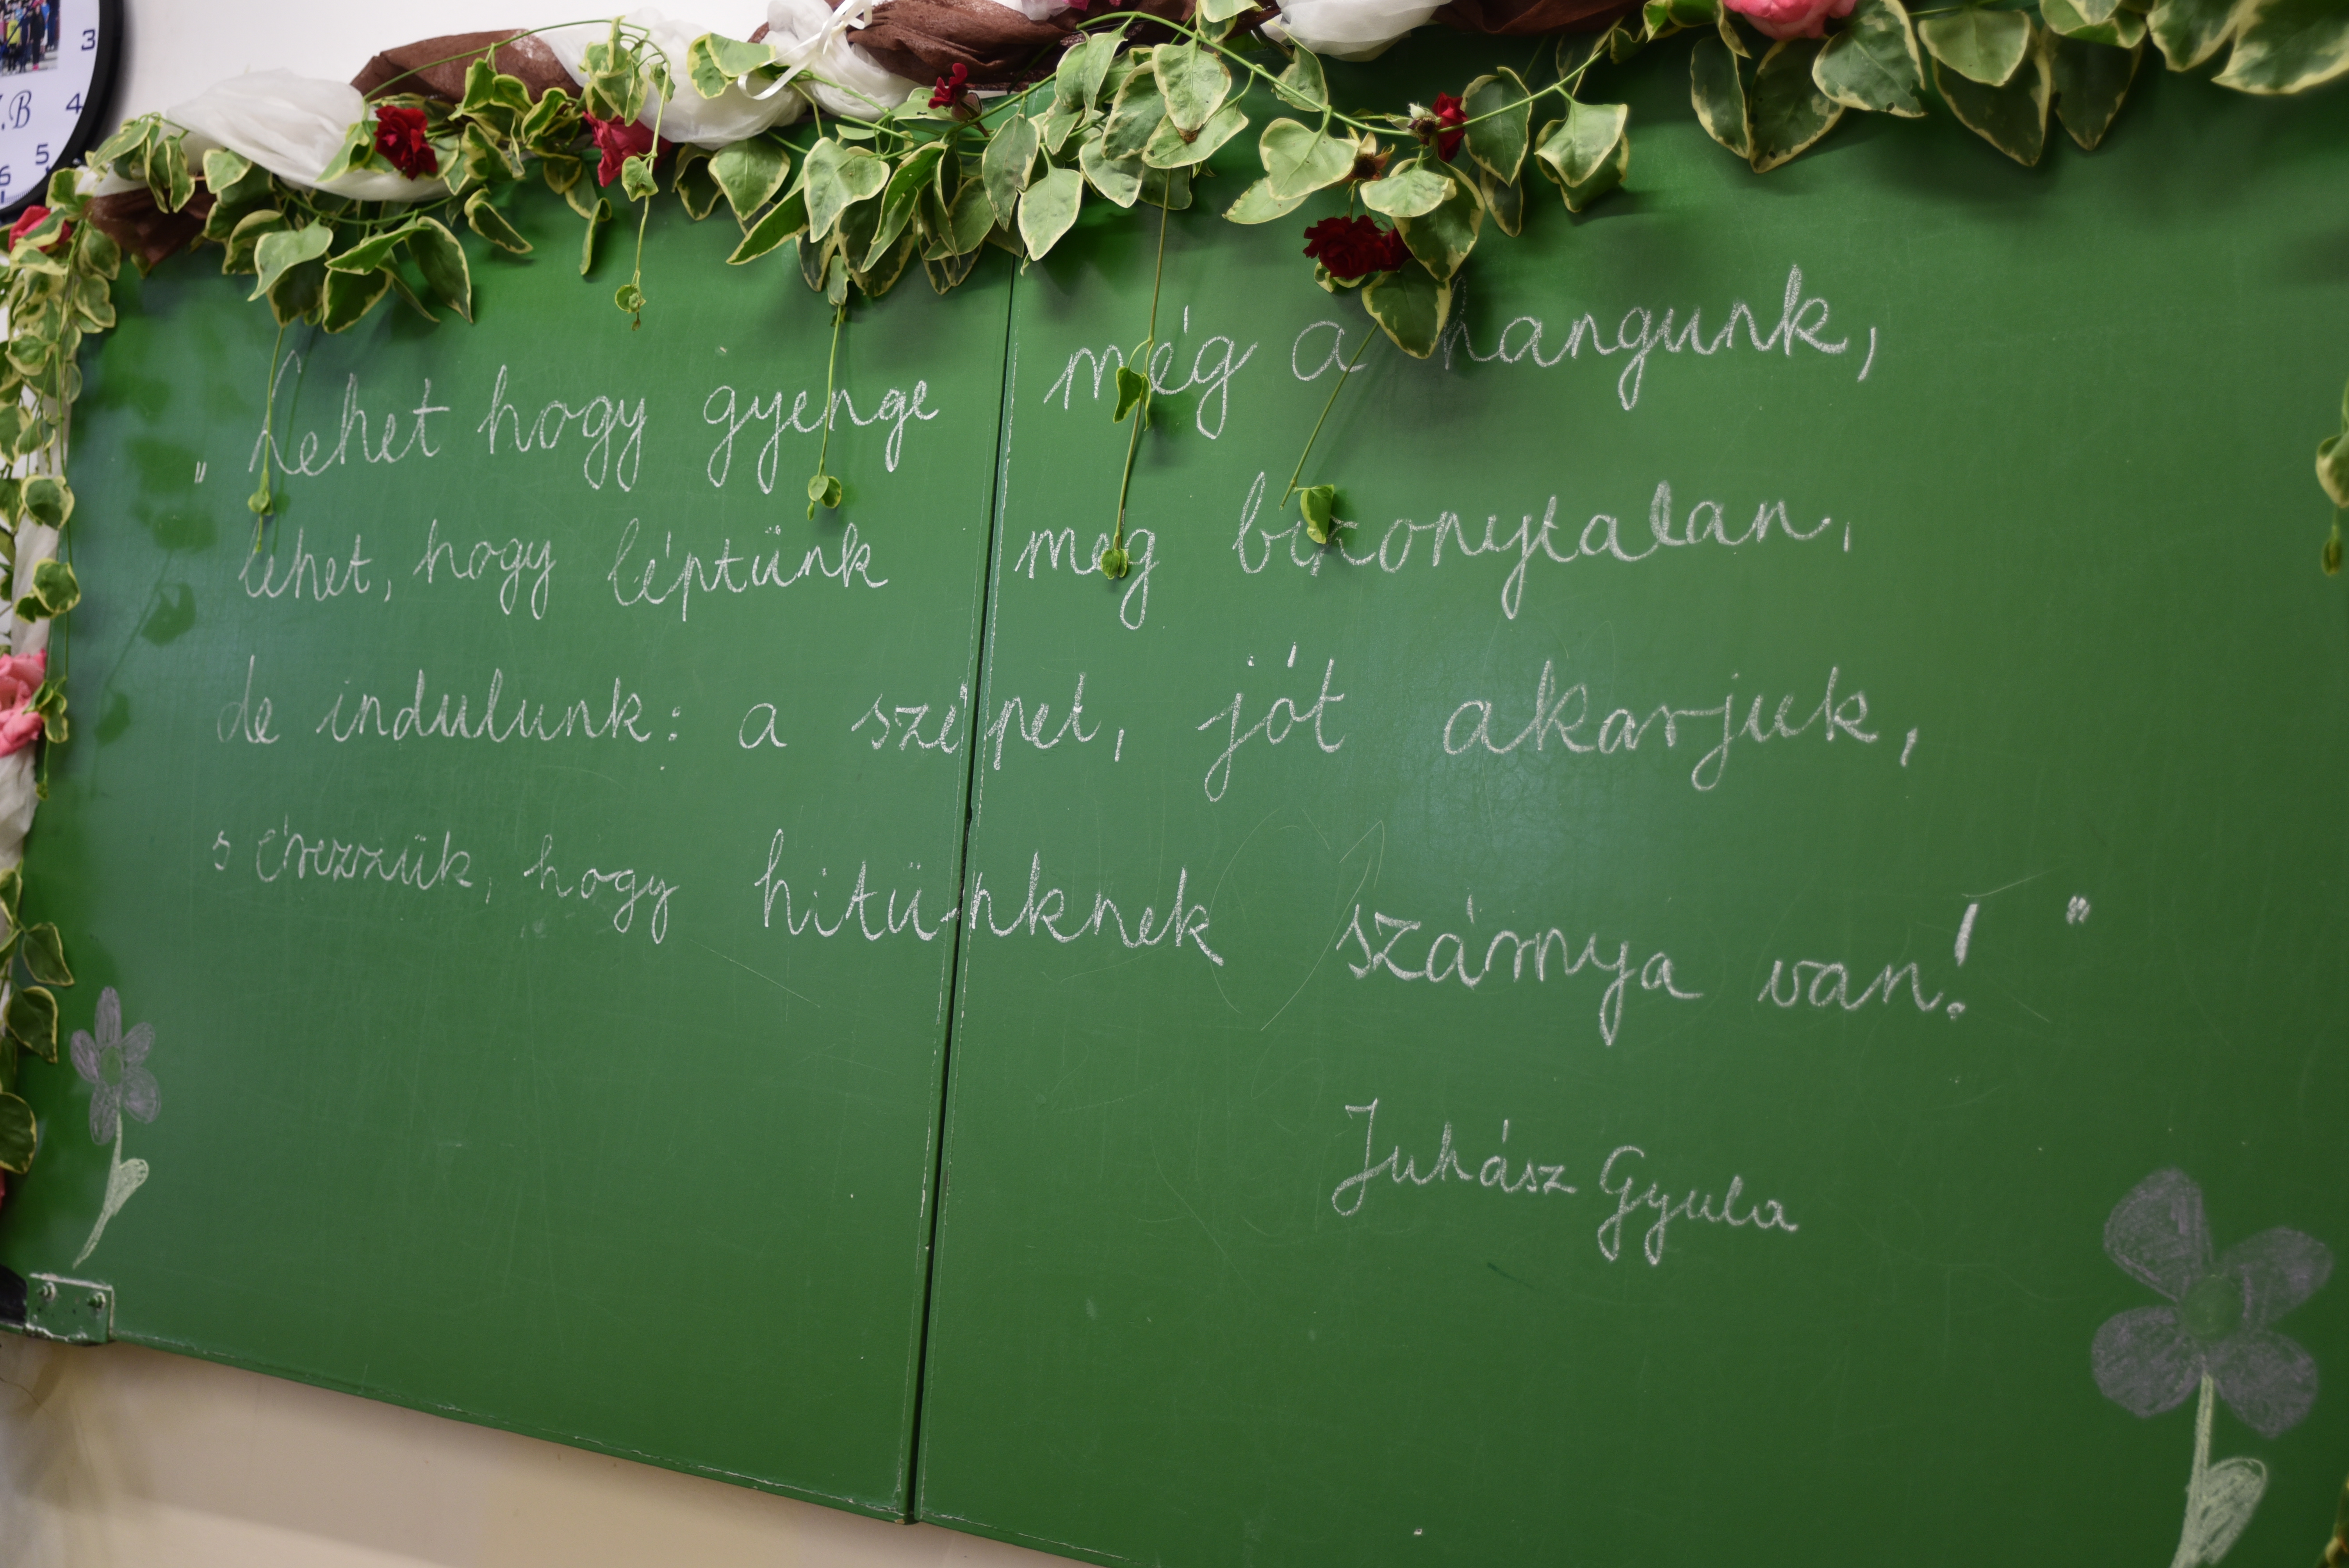 3
4
5
6
.B
„Lehet hogy gyenge még a hangunk,
lehet, hogy léptünk meg bizonytalan,
de indulunk: a szépet, jót akarjuk,
s érezzük, hogy hitünknek szárnya van!"
Juhász Gyula